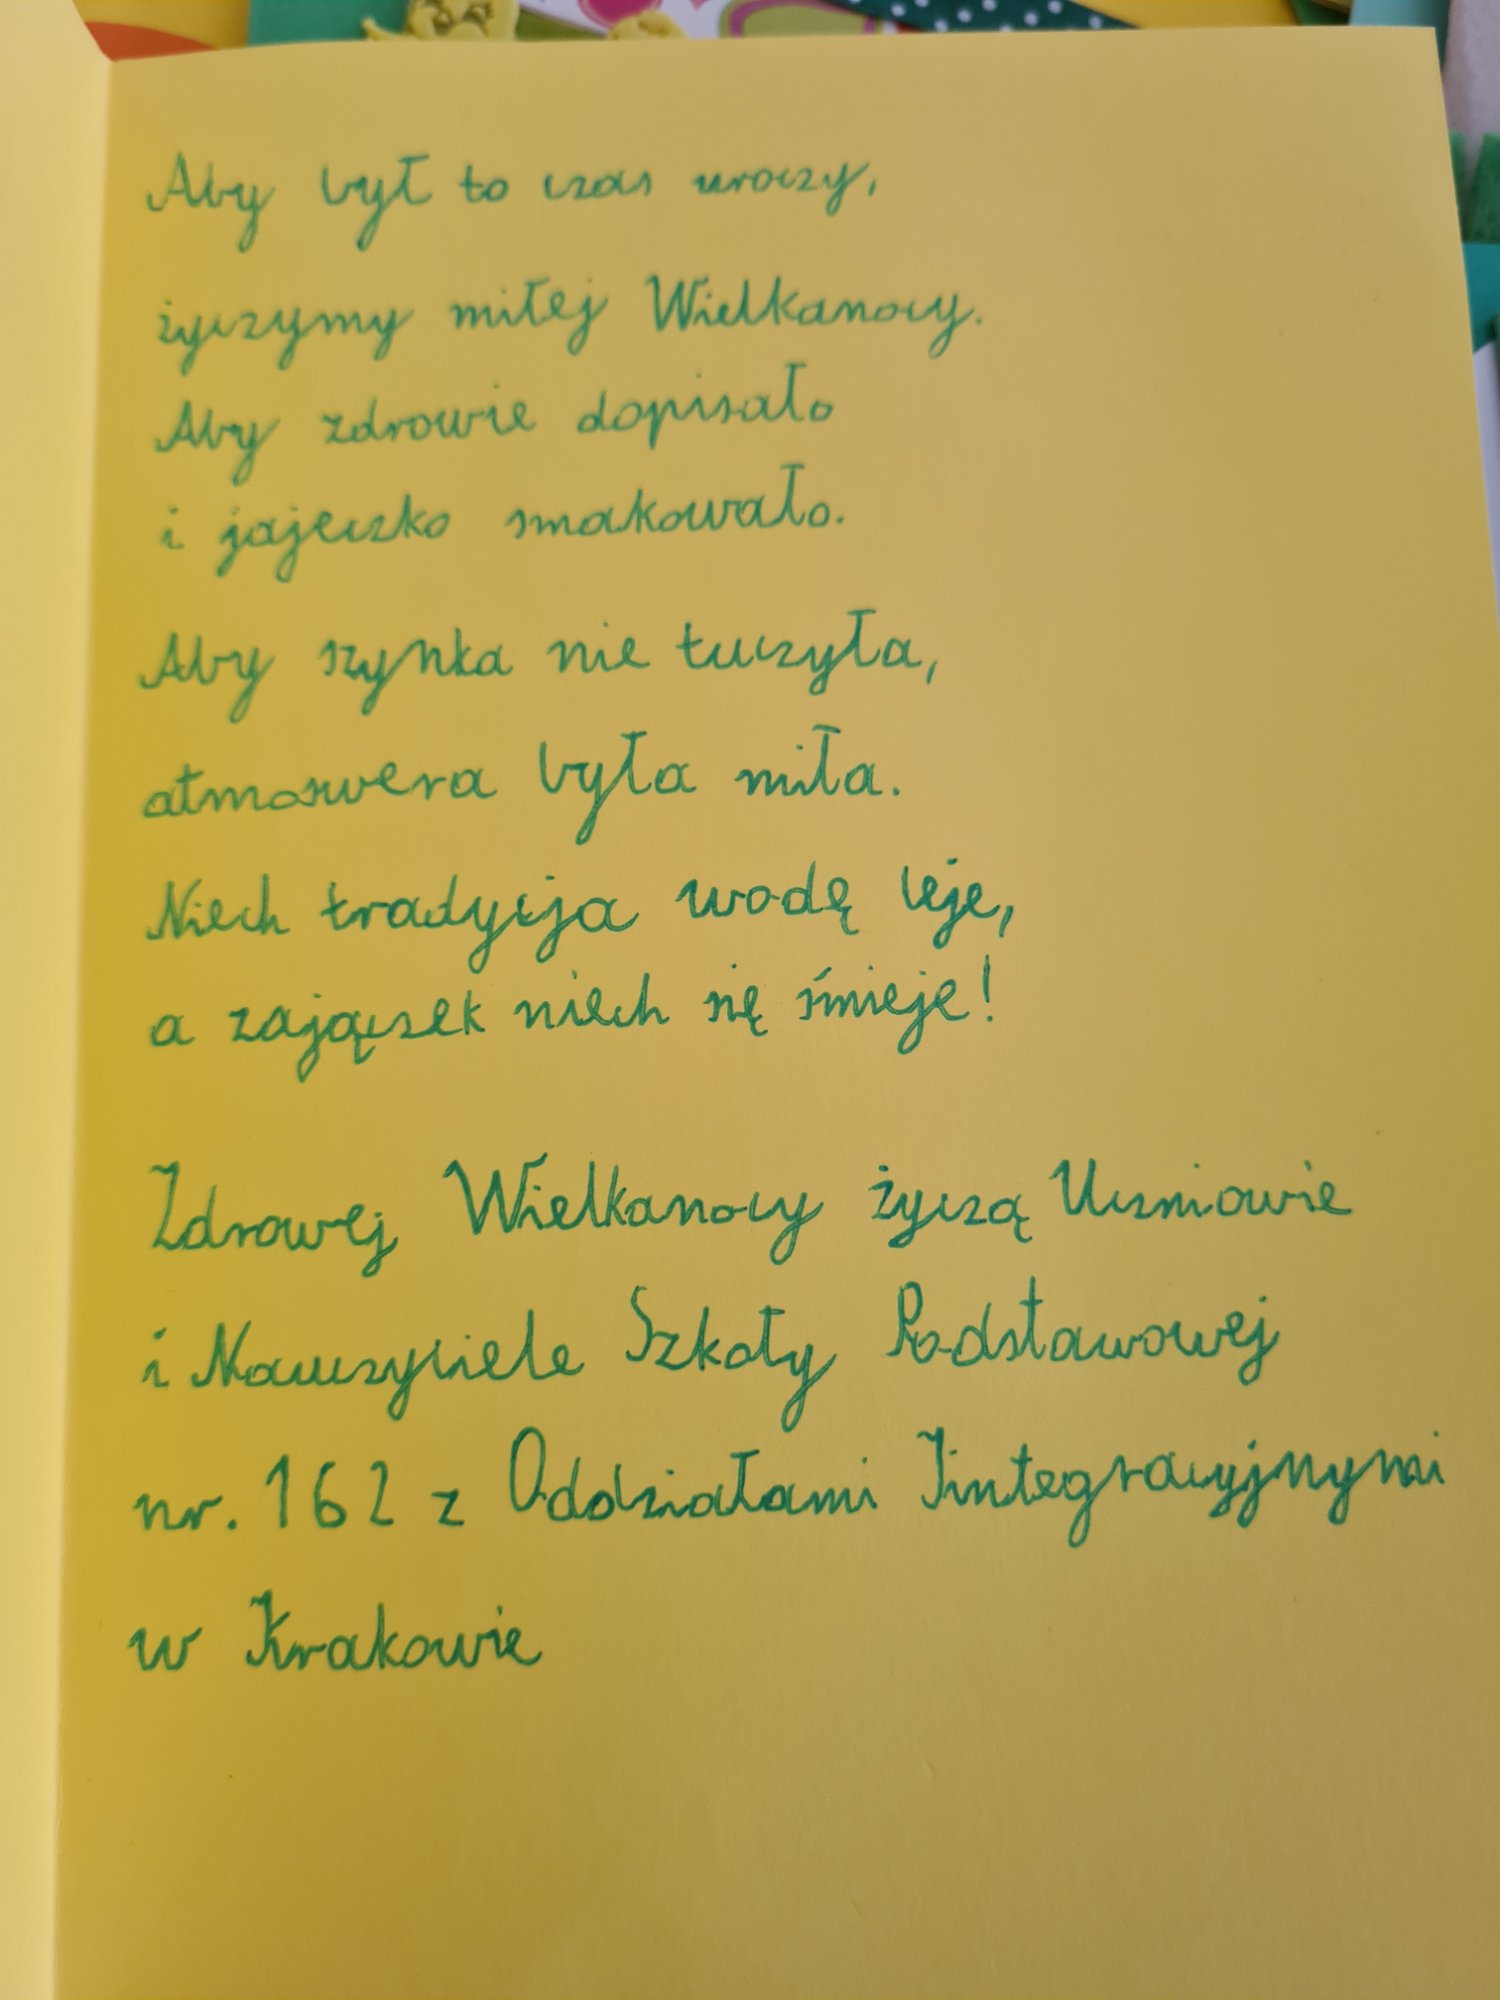 Aby był to czas uroczy,
życzymy miłej Wielkanocy.
Aby zdrowie dopisało
i jajeczko smakowało.
Aby szynka nie tuczyła,
atmoswera była miła.
Niech tradycja wodę leje,
a zajączek niech się śmieje!
Zdrowej Wielkanocy życzą Uczniowie
i Nauczyciele Szkoły Podstawowej
nr. 162 z Oddziałami Iintegracyjnymi
w Krakowie